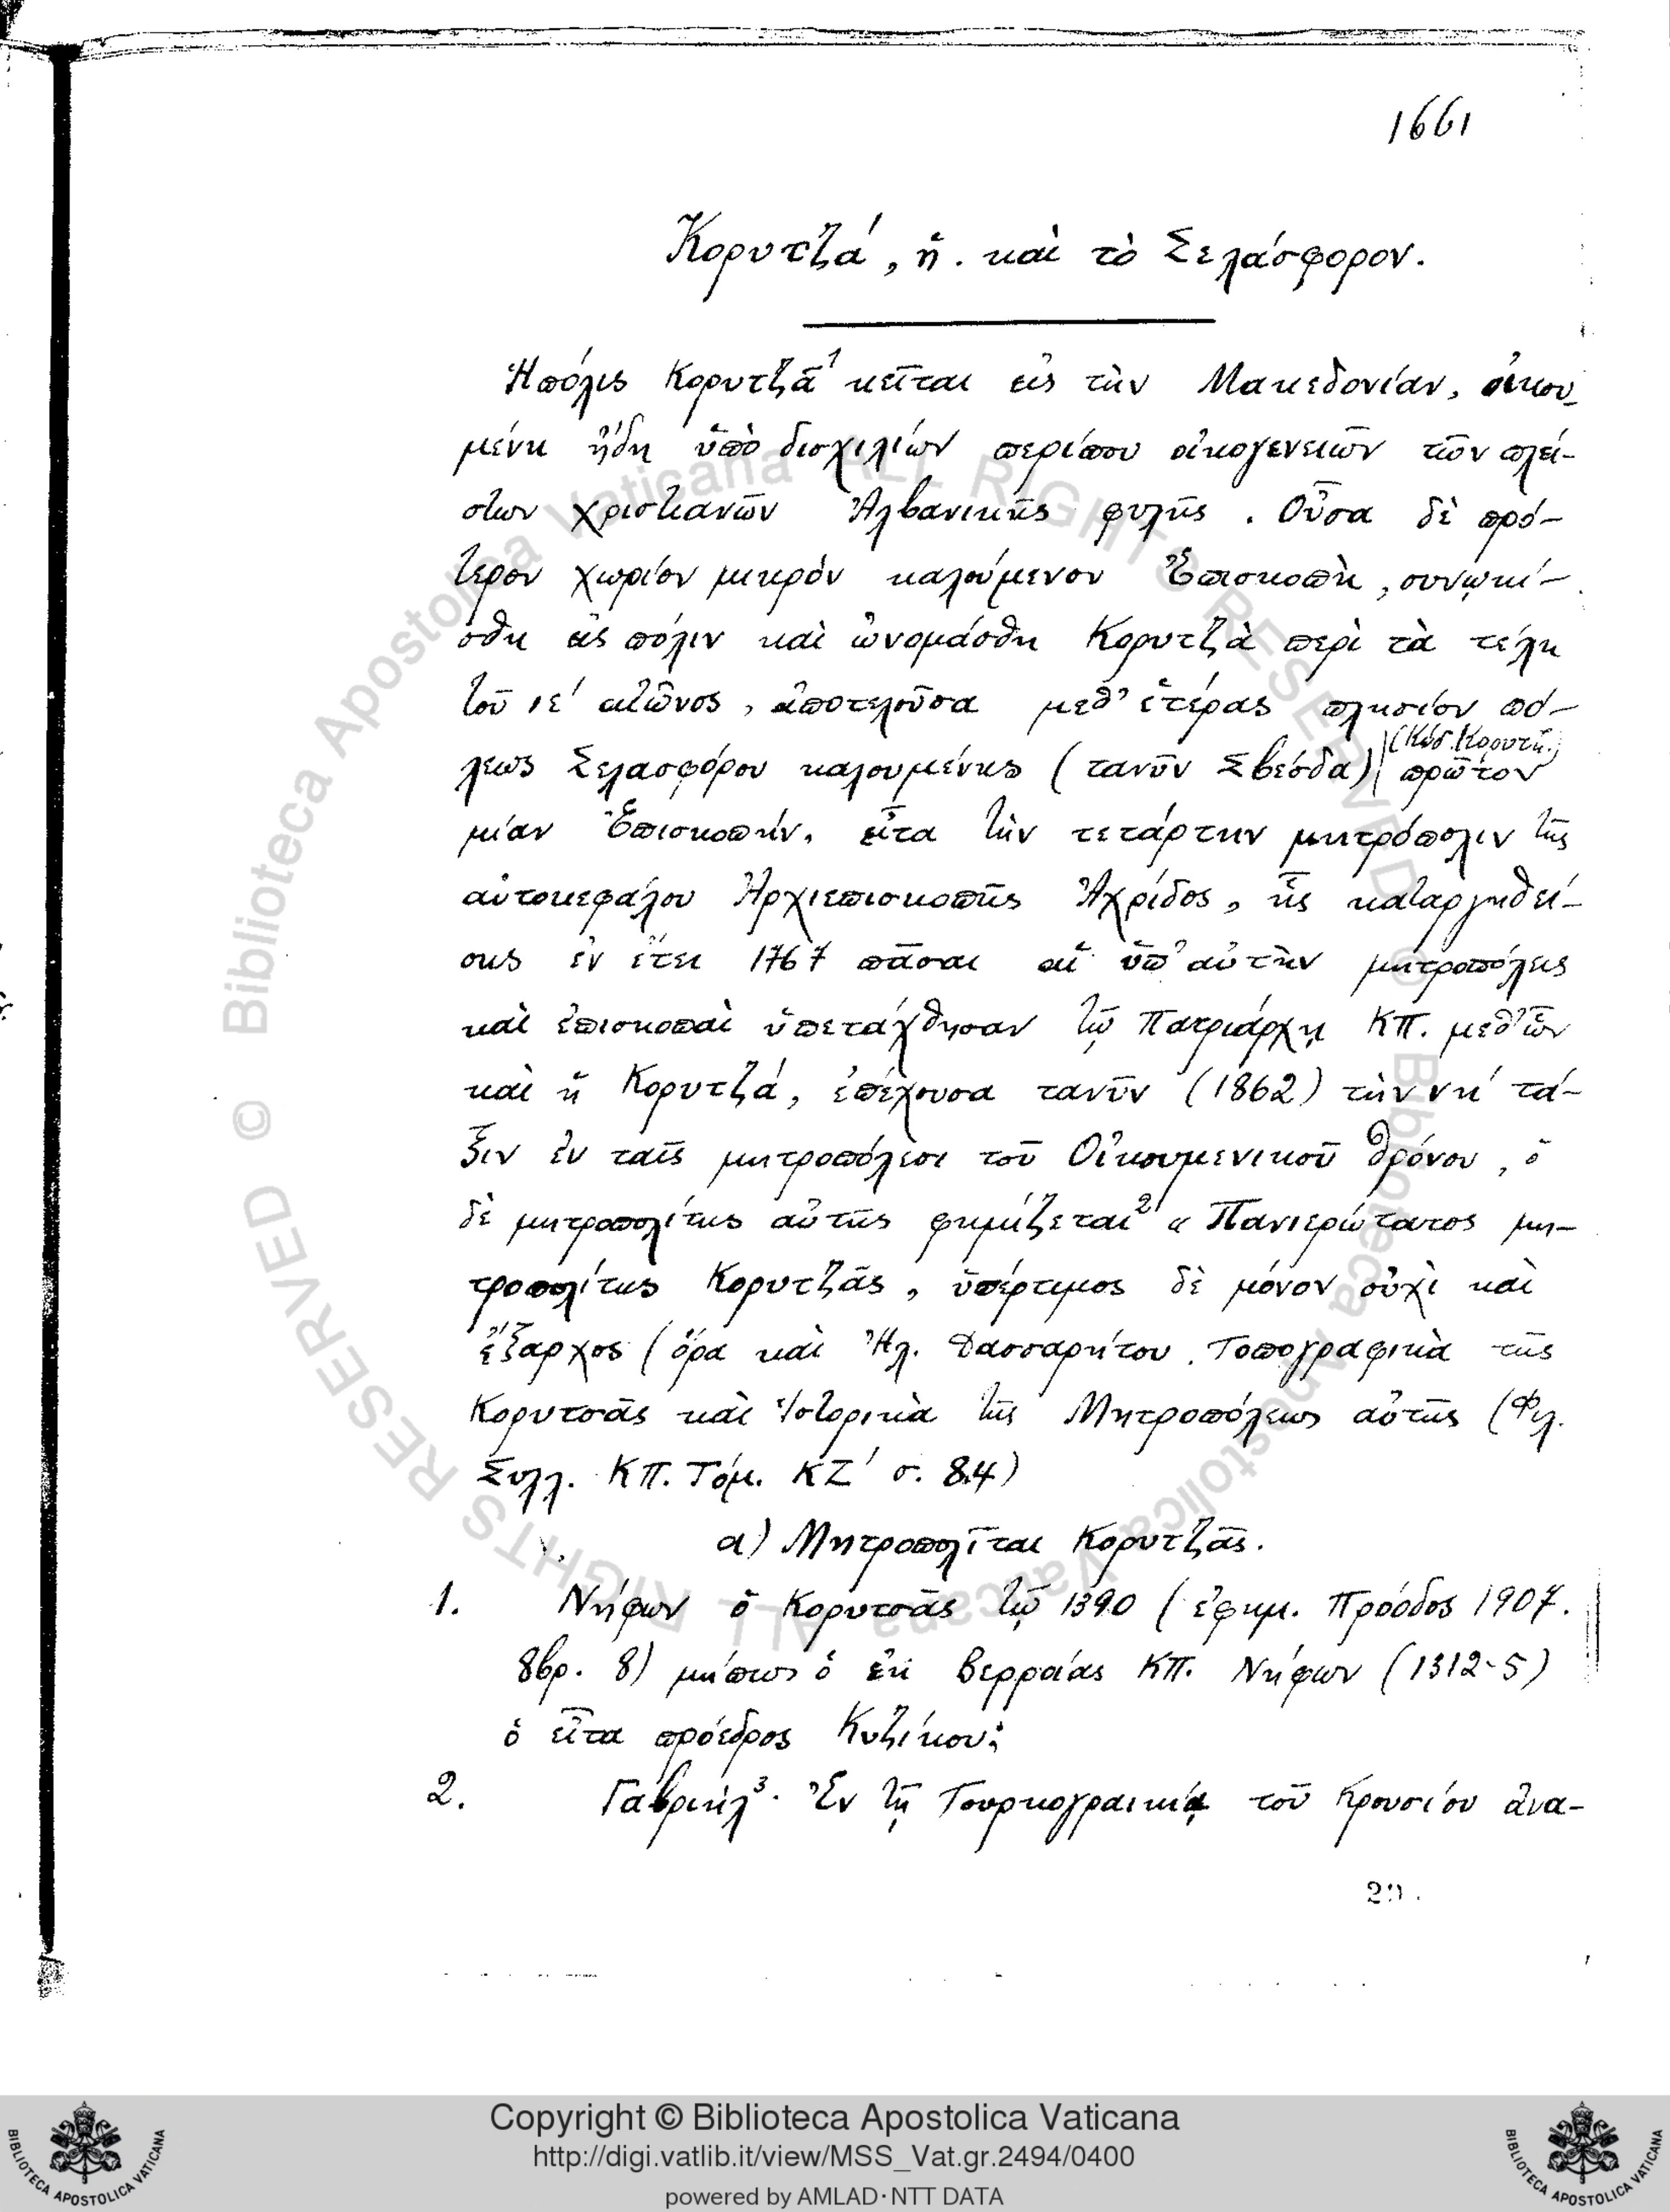 1661
Κορυτζά, ἡ. καὶ τὸ Σελάσφορον.
Ἡ πόλις Κορυτζᾶ¹ κεῖται εἰς τὴν Μακεδονίαν, οἰκου-
μένη ἤδη ὑπὸ δισχιλίων περίπου οἰκογενειῶν τῶν πλεί-
στων χριστιανῶν Ἀλβανικῆς φυλῆς. Οὖσα δὲ πρό-
τερον χωρίον μικρὸν καλούμενον Ἐπισκοπὴ, συνῳκί-
σθη εἰς πόλιν καὶ ὠνομάσθη Κορυτζὰ περὶ τὰ τέλη
τοῦ ιέ αἰῶνος, ἀποτελοῦσα μεθ' ἑτέρας πλησίον πό-
(Κώδ. Κορυτζ.)
λεως Σελασφόρου καλουμένης (τανῦν Σβέσδα) πρῶτον
μίαν Ἐπισκοπήν, εἶτα τὴν τετάρτην μητρόπολιν τῆς
αὐτοκεφάλου Ἀρχιεπισκοπῆς Ἀχρίδος, ἧς καταργηθεί-
σης ἐν ἔτει 1767 πᾶσαι αἱ ὑπ' αὐτὴν μητροπόλεις
καὶ ἐπισκοπαὶ ὑπετάχθησαν τῷ Πατριάρχῃ ΚΠ. μεθ' ὧν
καὶ ἡ Κορυτζά, ἐπέχουσα τανῦν (1862) τὴν νη' τά-
ξιν ἐν ταῖς μητροπόλεσι τοῦ Οἰκουμενικοῦ θρόνου, ὁ
δὲ μητροπολίτης αὐτῆς φημίζεται² « Πανιερώτατος μη-
τροπολίτης Κορυτζᾶς, ὑπέρτιμος δὲ μόνον οὐχὶ καὶ
ἔξαρχος (ὅρα καὶ Ἠλ. Δασσαρήτου. Τοπογραφικὰ τῆς
Κορυτσᾶς καὶ Ἱστορικὰ τῆς Μητροπόλεως αὐτῆς (Φιλ.
Συλλ. ΚΠ. Τόμ. ΚΖ' σ. 84)
α) Μητροπολῖται Κορυτζᾶς.
1. Νήφων ὁ Κορυτσᾶς τῷ 1390 (ἐφημ. Πρόοδος 1907.
8βρ. 8) μήπως ὁ ἐκ Βερροίας ΚΠ. Νήφων (1312-5)
ὁ εἶτα πρόεδρος Κυζίκου;
2. Γαβριήλ³. Ἐν τῇ Τουρκογραικίᾳ τοῦ Κρουσίου ἀνα-
29.
© Biblioteca Apostolica Vaticana ALL RIGHTS RESERVED
Copyright © Biblioteca Apostolica Vaticana
http://digi.vatlib.it/view/MSS_Vat.gr.2494/0400
powered by AMLAD·NTT DATA
BIBLIOTECA APOSTOLICA VATICANA
BIBLIOTECA APOSTOLICA VATICANA